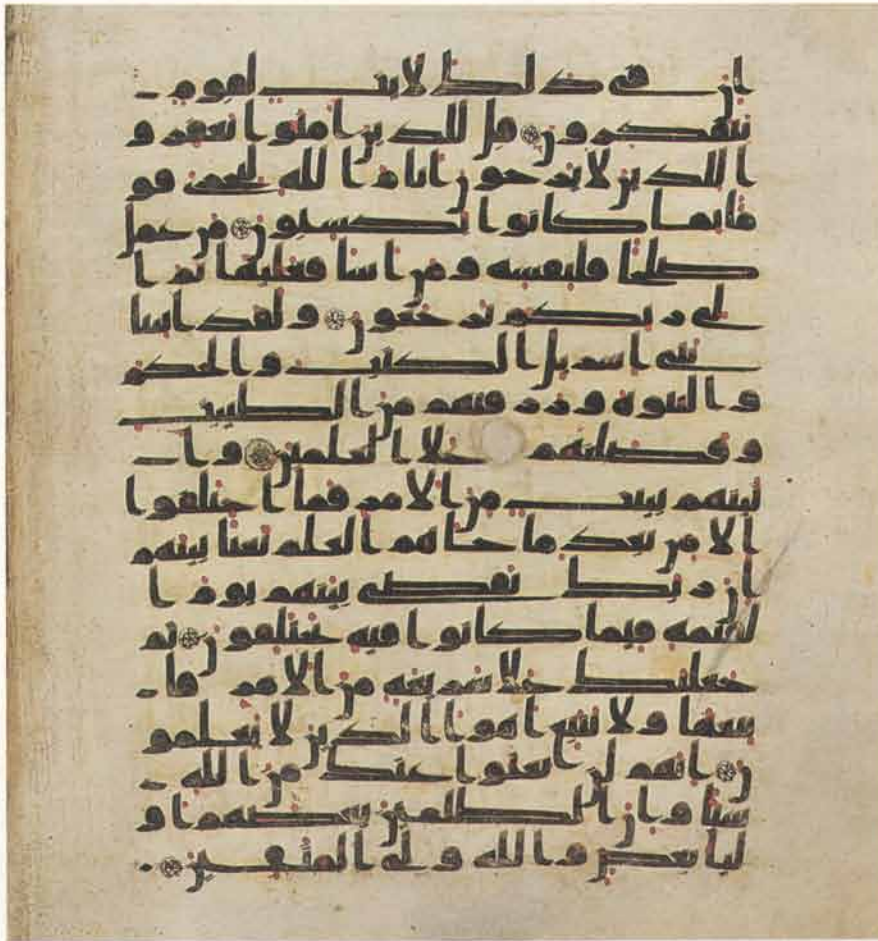 ان في ذلك لايت لقوم
يتفكرون قل للذين امنوا يغفرو
ا للذين لا يرجون ايام الله ليجزي قو
ما بما كانوا يكسبون من عمل
صلحا فلنفسه ومن اسا فعليها ثم ا
لى ربكم ترجعون ولقد اتينا
بني اسريل الكتب والحكم
والنبوة ورزقنهم من الطيبت
وفضلنهم على العلمين وا
تينهم بينت من الامر فما اختلفوا
الا من بعد ما جاهم العلم بغيا بينهم
ان ربك يقضي بينهم يوم ا
لقيمة فيما كانوا فيه يختلفون ثم
جعلنك على شريعة من الامر فا
تبعها ولا تتبع اهوا الذين لا يعلمو
ن انهم لن يغنوا عنك من الله
شيا وان الظلمين بعضهم او
ليا بعض والله ولي المتقين